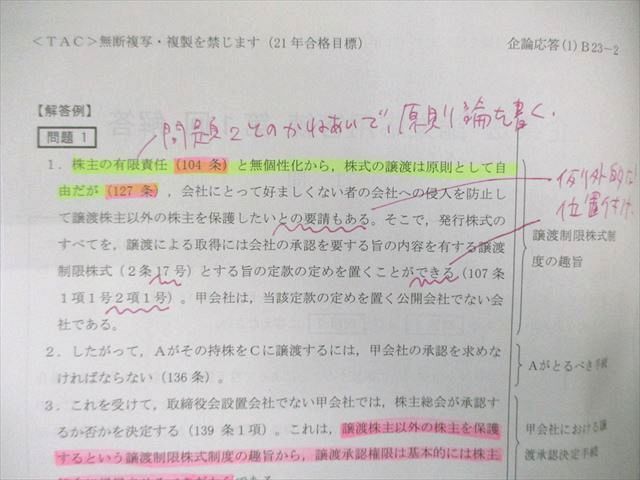 <TAC>無断複写・複製を禁じます(21年合格目標)
企論応答(1)B23-2
【解答例】
問題1
問題2とのかねあいで、原則論を書く、
1．株主の有限責任(104条)と無個性化から，株式の譲渡は原則として自
由だが(127条)，会社にとって好ましくない者の会社への侵入を防止し
て譲渡株主以外の株主を保護したいとの要請もある。そこで，発行株式の
すべてを，譲渡による取得には会社の承認を要する旨の内容を有する譲渡
制限株式(2条17号)とする旨の定款の定めを置くことができる(107条
1項1号2項1号)。甲会社は，当該定款の定めを置く公開会社でない会
社である。
例外的な
位置付け
譲渡制限株式制
度の趣旨
2．したがって，Aがその持株をCに譲渡するには，甲会社の承認を求めな
ければならない(136条)。
Aがとるべき手続
3．これを受けて，取締役会設置会社でない甲会社では，株主総会が承認す
るか否かを決定する(139条1項)。これは，譲渡株主以外の株主を保護
するという譲渡制限株式制度の趣旨から，譲渡承認権限は基本的には株主
甲会社における譲
渡承認決定手続